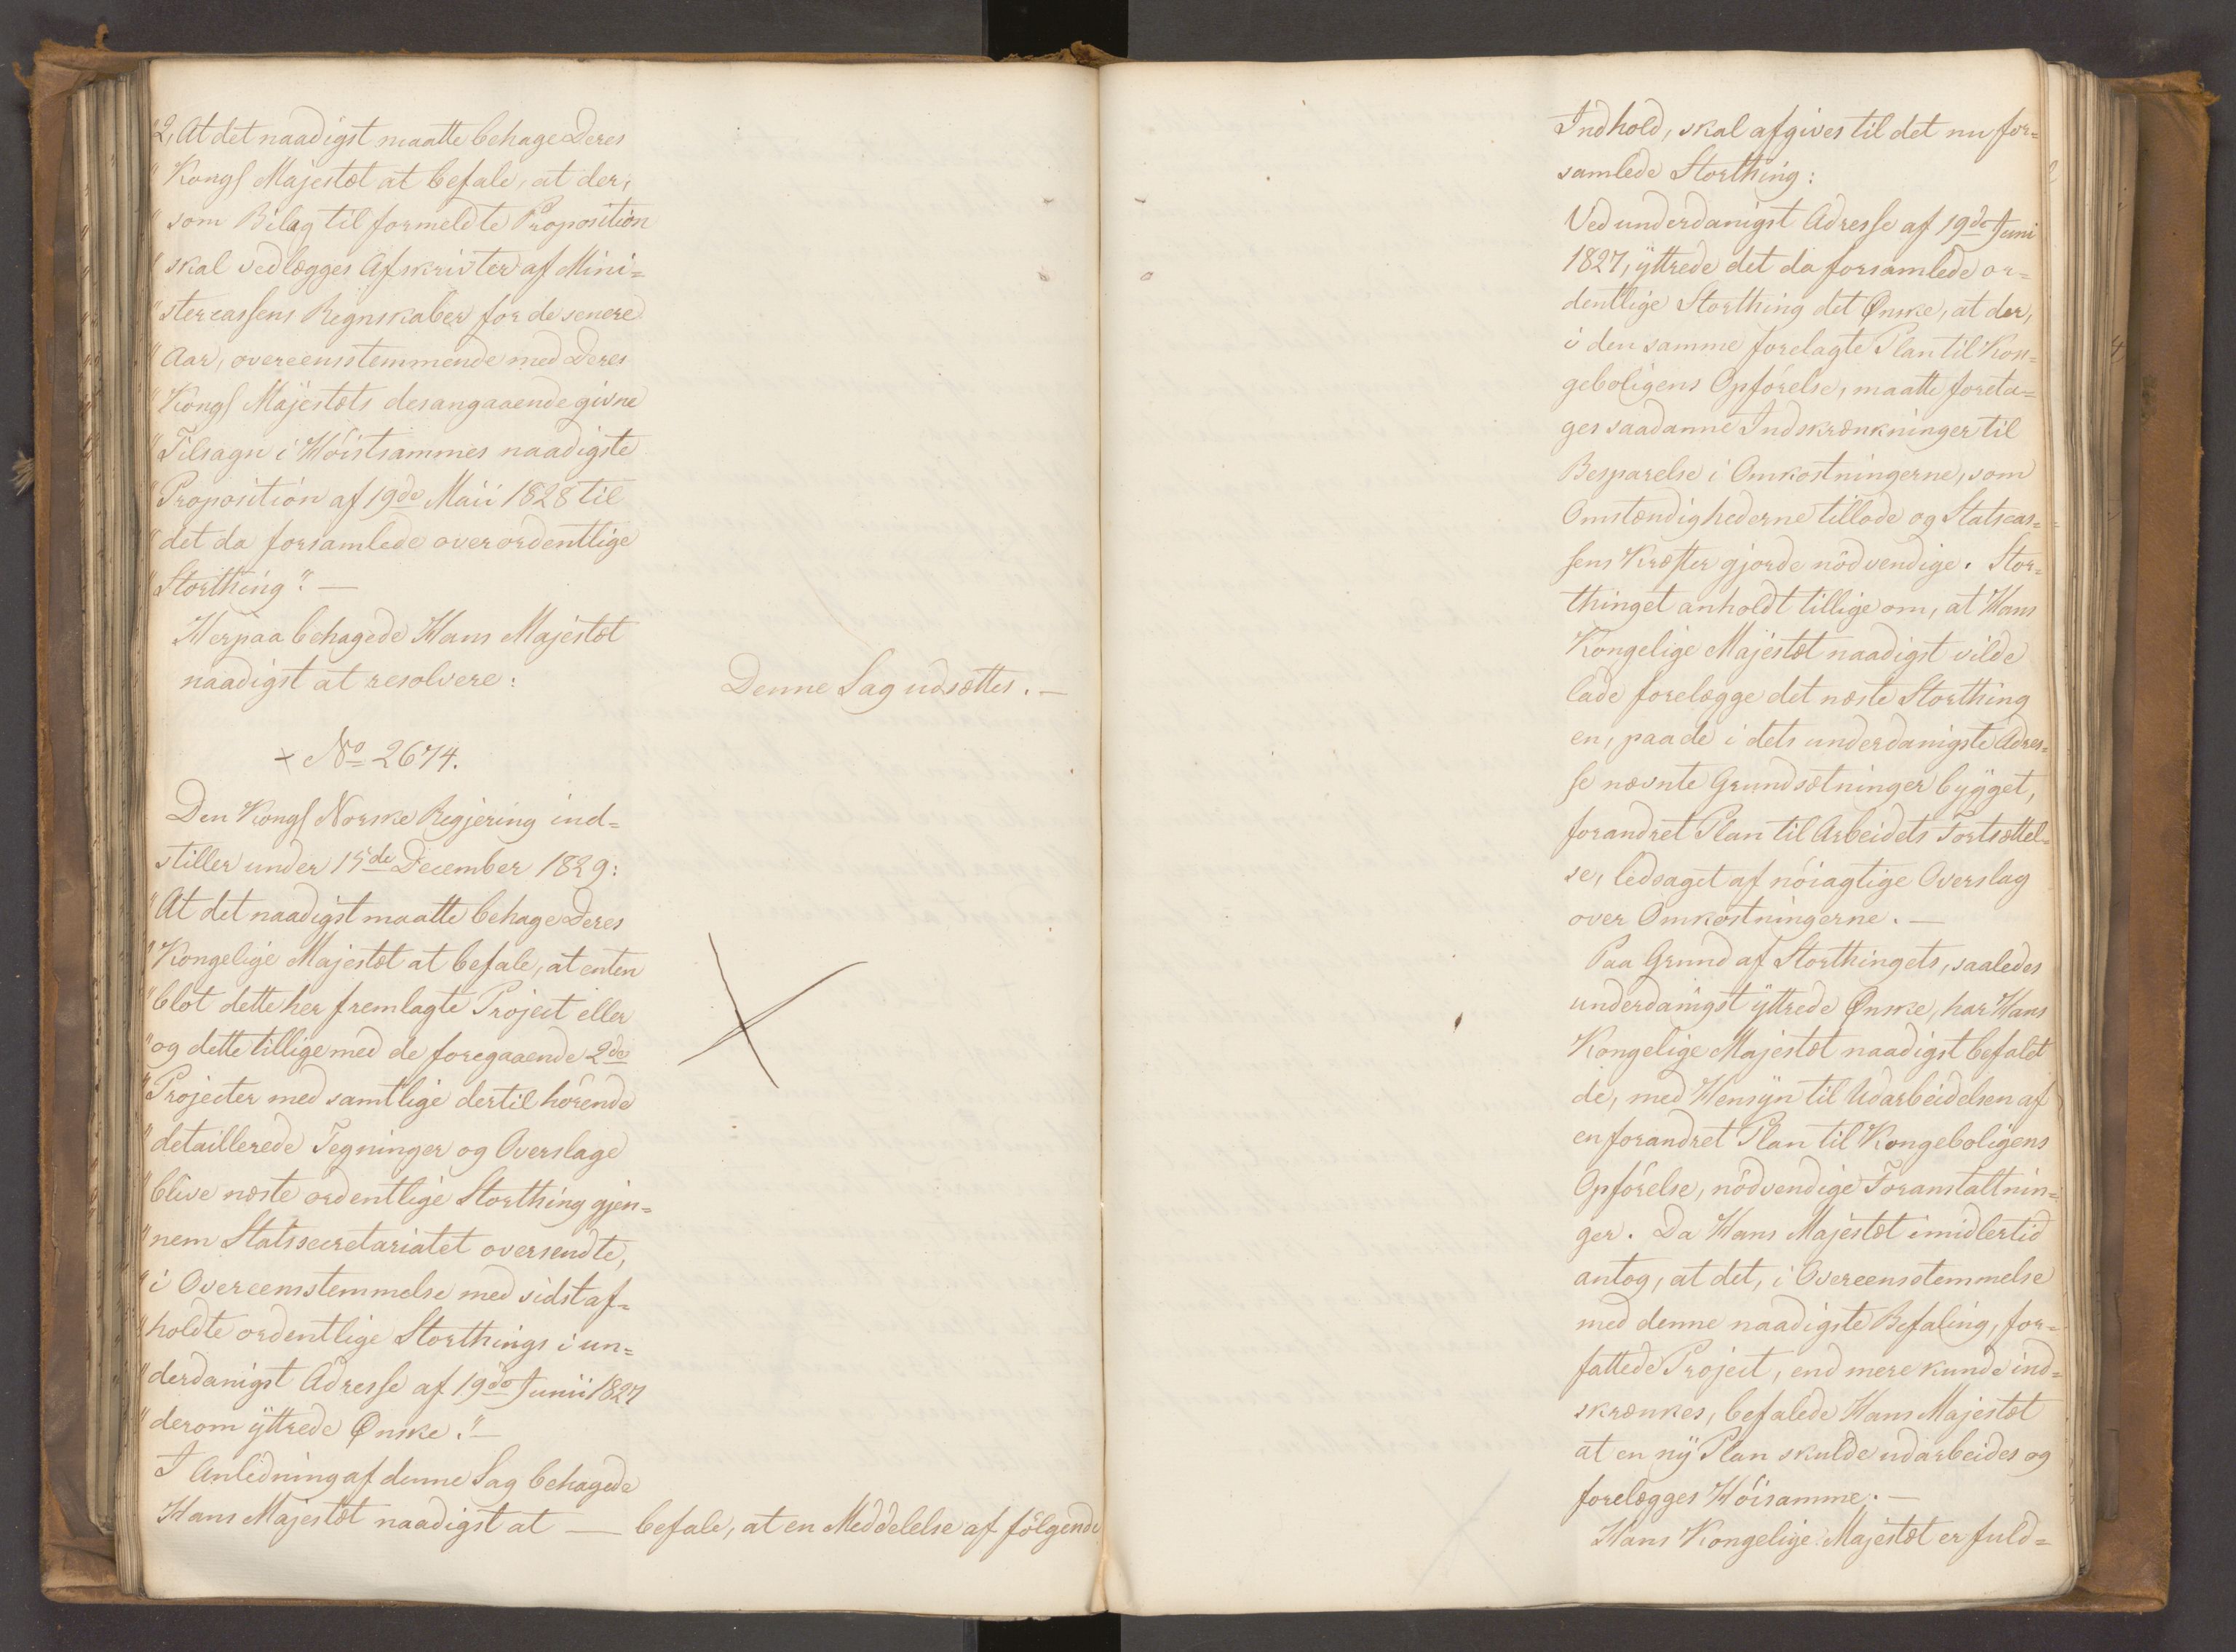 "2, At det naadigst maatte behage Deres
" Kongl Majestæt at befale, at der,
" som Bilag til formeldte Proposition
" skal vedlægges Afskrivter af Mini=
" stercassens Regnskaber for de senere
" Aar, overeensstemmende med Deres
" Kongl Majestæts desangaaende givne
" Tilsagn i Höistsammes naadigste
" Proposition af 19de Maii 1828 til
" det da forsamlede overordentlige
" Storthing". —
Herpaa behagede Hans Majestæt
naadigst at resolvere:
Denne Sag udsættes. —
× No 2674.
Den Kongl Norske Regjering ind=
stiller under 15de December 1829:
" At det naadigst maatte behage Deres
" Kongelige Majestæt at befale, at enten
" blot dette her fremlagte Project eller
" og dette tillige med de foregaaende 2de
" Projecter med samtlige dertil hörende
" detaillerede Tegninger og Overslage
" blive næste ordentlige Storthing gjen=
" nem Statssecretariatet oversendte,
" i Overeensstemmelse med sidst af=
" holdte ordentlige Storthings i un=
" derdanigst Adresse af 19de Junii 1827
" derom ÿttrede Ønske." —
I Anledning af denne Sag behagede
Hans Majestæt naadigst at — befale, at en Meddelelse af fölgende
Indhold, skal afgives til det nu for=
samlede Storthing:
Ved underdanigst Adresse af 19de Juni
1827, ÿttrede det da forsamlede or=
dentlige Storthing det Ønske, at der,
i den samme forelagte Plan til Kon=
geboligens Opförelse, maatte foreta=
ges saadanne Indskrænkninger til
Besparelse i Omkostningerne, som
Omstændighederne tillode og Statscas=
sens Kræfter gjorde nödvendige. Stor=
thinget anholdt tillige om, at Hans
Kongelige Majestæt naadigst vilde
lade forelægge det næste Storthing
en, paa de i dets underdanigste Adres=
se nævnte Grundsætninger bÿgget,
forandret Plan til Arbeidets Fortsættel=
se, ledsaget af nöiagtige Overslag
over Omkostningerne. —
Paa Grund af Storthingets, saaledes
underdanigst ÿttrede Ønske, har Hans
Kongelige Majestæt naadigst befalet
de, med Hensÿn til Udarbeidelsen af
en forandret Plan til Kongeboligens
Opförelse, nödvendige Foranstaltnin=
ger. Da Hans Majestæt imidlertid
antog, at det, i Overeensstemmelse
med denne naadigste Befaling, for=
fattede Project, end mere kunde ind=
skrænkes, befalede Hans Majestæt
at en nÿ Plan skulde udarbeides og
forelægges Höisamme. —
Hans Kongelige Majestæt er fuld=